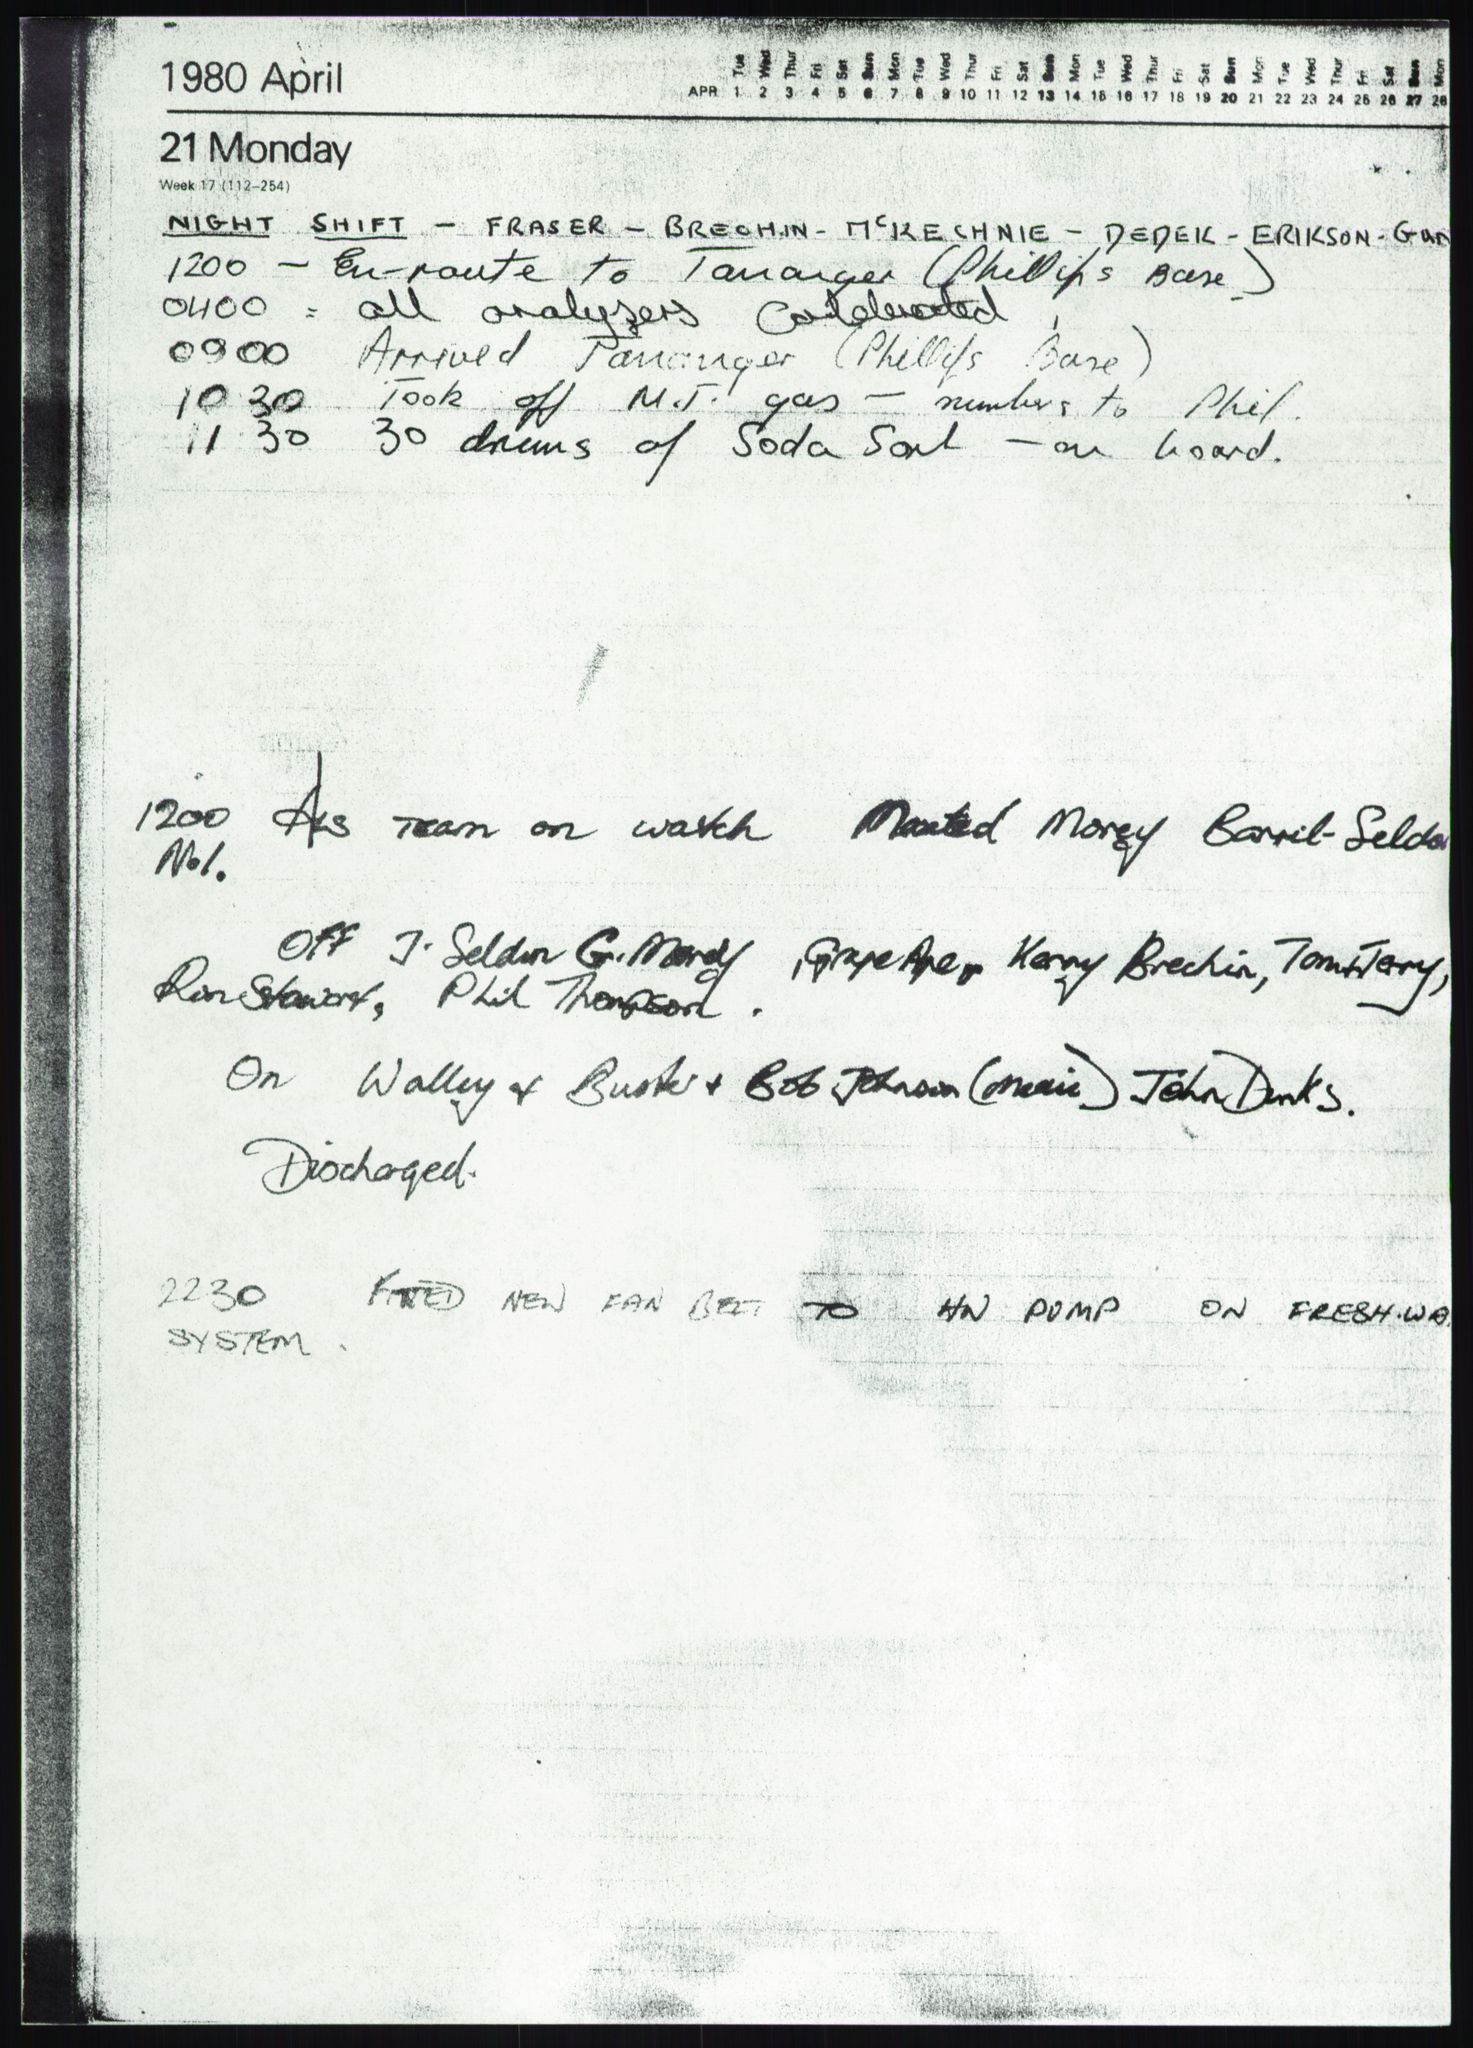 1980 April
Tue Wed Thur Fri Sat Sun Mon Tue Wed Thur Fri Sat Sun Mon Tue Wed Thur Fri Sat Sun Mon Tue Wed Thur Fri Sat Sun Mon
APR 1 2 3 4 5 6 7 8 9 10 11 12 13 14 15 16 17 18 19 20 21 22 23 24 25 26 27 28
21 Monday
Week 17 (112–254)
NIGHT SHIFT – FRASER – BRECHIN – McKECHNIE – DEDEK – ERIKSON –
1200 – En-route to Tananger (Phillips Base)
0400 : all analyzers
0900 Arrived Tananger (Phillips Base)
10 30 Took off M.T. gas – numbers to Phil.
11 30 30 drums of Soda Sorb – on board.
1200 team on watch Morgy Barril - Seldon
No1.
Off J. Seldon G. Mordy, Grape Ape, Kenny Brechin, Tom & Jerry,
Ron Stewart, Phil Thompson.
On Walley + Buster + Bob Johnson John Dinks.
Discharged.
2230 FITTED NEW FAN BELT TO HW PUMP ON FRESH. WA
SYSTEM.